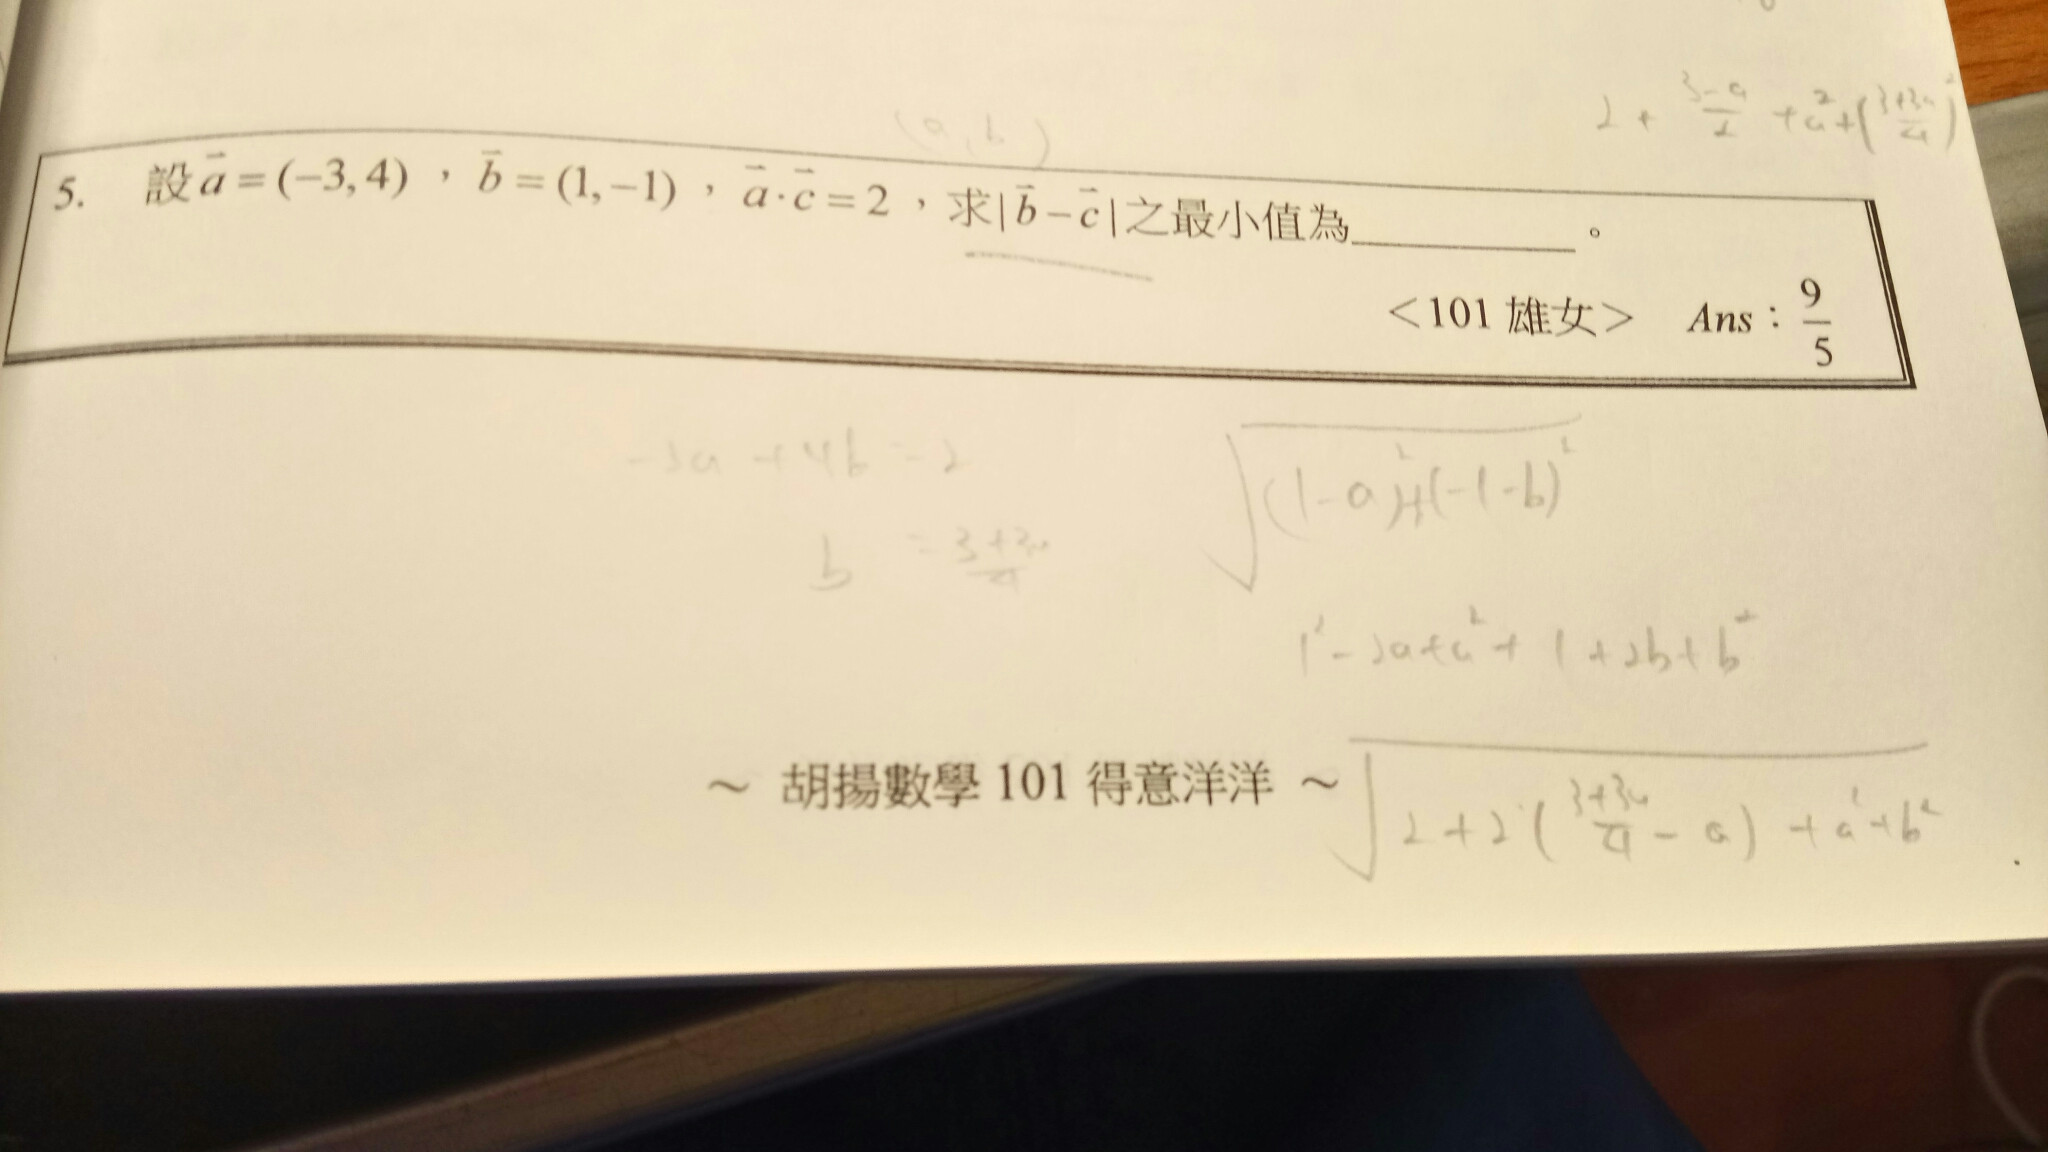 2 + \frac{3-a}{2} + a^2 + (\frac{3+3a}{4})^2
(a, b)
5. 設 \vec{a} = (-3, 4)，\vec{b} = (1, -1)，\vec{a} \cdot \vec{c} = 2，求|\vec{b} - \vec{c}|之最小值為________。
<101 雄女> Ans：\frac{9}{5}
-3a + 4b = 2
\sqrt{(1-a)^2+(-1-b)^2}
b = \frac{3+3a}{4}
1^2 - 2a + a^2 + 1 + 2b + b^2
～ 胡揚數學 101 得意洋洋 ～
\sqrt{2 + 2(\frac{3+3a}{4} - a) + a^2 + b^2}